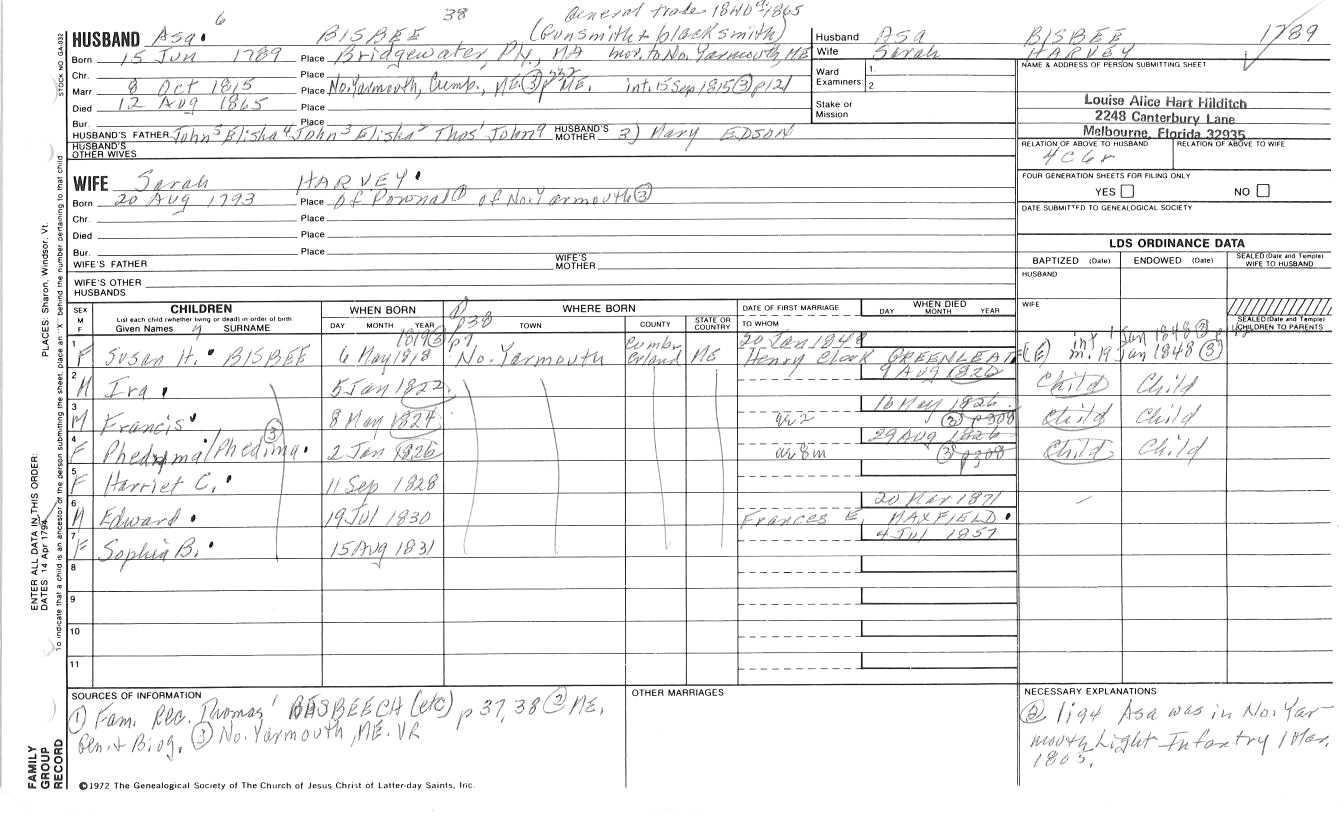 6 38 General trade 1840-1865
HUSBAND Asa BISBEE (Gunsmith & blacksmith)
Born 15 Jun 1789 Place Bridgewater, Ply, MA mov. to No. Yarmouth, ME
Chr. Place
Marr 8 Oct 1815 Place No. Yarmouth, Cumb., ME. ③ p ME. int. 15 Sep 1815 ③ p 121
Died 12 Aug 1865 Place
Bur. Place
HUSBAND'S FATHER John⁵ Elisha⁴ John³ Elisha² Thos' John HUSBAND'S MOTHER 3) Mary EDSON
HUSBAND'S OTHER WIVES
Husband Asa BISBEE 1789
Wife Sarah HARVEY
Ward Examiners: 1. 2.
Stake or Mission
NAME & ADDRESS OF PERSON SUBMITTING SHEET
Louise Alice Hart Hilditch
2248 Canterbury Lane
Melbourne, Florida 32935
RELATION OF ABOVE TO HUSBAND RELATION OF ABOVE TO WIFE
4C6r
FOUR GENERATION SHEETS FOR FILING ONLY
YES NO
DATE SUBMITTED TO GENEALOGICAL SOCIETY
WIFE Sarah HARVEY
Born 20 Aug 1793 Place Of Pownal ① of No. Yarmouth ③
Chr. Place
Died Place
Bur. Place
WIFE'S FATHER WIFE'S MOTHER
WIFE'S OTHER HUSBANDS
LDS ORDINANCE DATA
BAPTIZED (Date) ENDOWED (Date) SEALED (Date and Temple) WIFE TO HUSBAND
HUSBAND
WIFE
SEALED (Date and Temple) CHILDREN TO PARENTS
SEX M F CHILDREN List each child (whether living or dead) in order of birth Given Names SURNAME
WHEN BORN DAY MONTH YEAR
WHERE BORN TOWN COUNTY STATE OR COUNTRY
DATE OF FIRST MARRIAGE TO WHOM
WHEN DIED DAY MONTH YEAR
① p38
1 F Susan H. BISBEE 6 May 1818 1819 ③ p7 No. Yarmouth Cumberland ME 20 Jan 1848 Henry Clock GREENLEAF (E) int 1 Jan 1848 ③ m. 19 Jan 1848 ③
2 M Ira 5 Jan 1822 9 Aug 1826 Child Child
3 M Francis 8 May 1824 16 May 1826 ae 2 ③ p308 Child Child
4 F Phedyma/Phedima ③ 2 Jan 1826 29 Aug 1826 ae 8m ③ p308 Child Child
5 F Harriet C. 11 Sep 1828
6 M Edward 19 Jul 1830 20 Mar 1871 Frances E. MAXFIELD
7 F Sophia B. 15 Aug 1831 4 Jul 1857
8
9
10
11
SOURCES OF INFORMATION
① Fam. Rec. Thomas' BISBEECH (etc) p 37, 38 ② ME.
Gen. & Biog. ③ No. Yarmouth, ME. VR
OTHER MARRIAGES
NECESSARY EXPLANATIONS
② 1194 Asa was in No. Yar-
mouth Light Infantry 1 Mar.
1805.
©1972 The Genealogical Society of The Church of Jesus Christ of Latter-day Saints, Inc.
STOCK NO. GA-032
PLACES: Sharon, Windsor, Vt.
ENTER ALL DATA IN THIS ORDER:
DATES 14 Apr 1794
To indicate that a child is an ancestor of the person submitting the sheet, place an "X" behind the number pertaining to that child
FAMILY
GROUP
RECORD